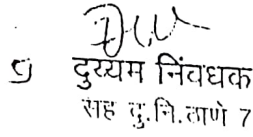 दुय्यम निंबधक
सह दु.नि.ठाणे 7